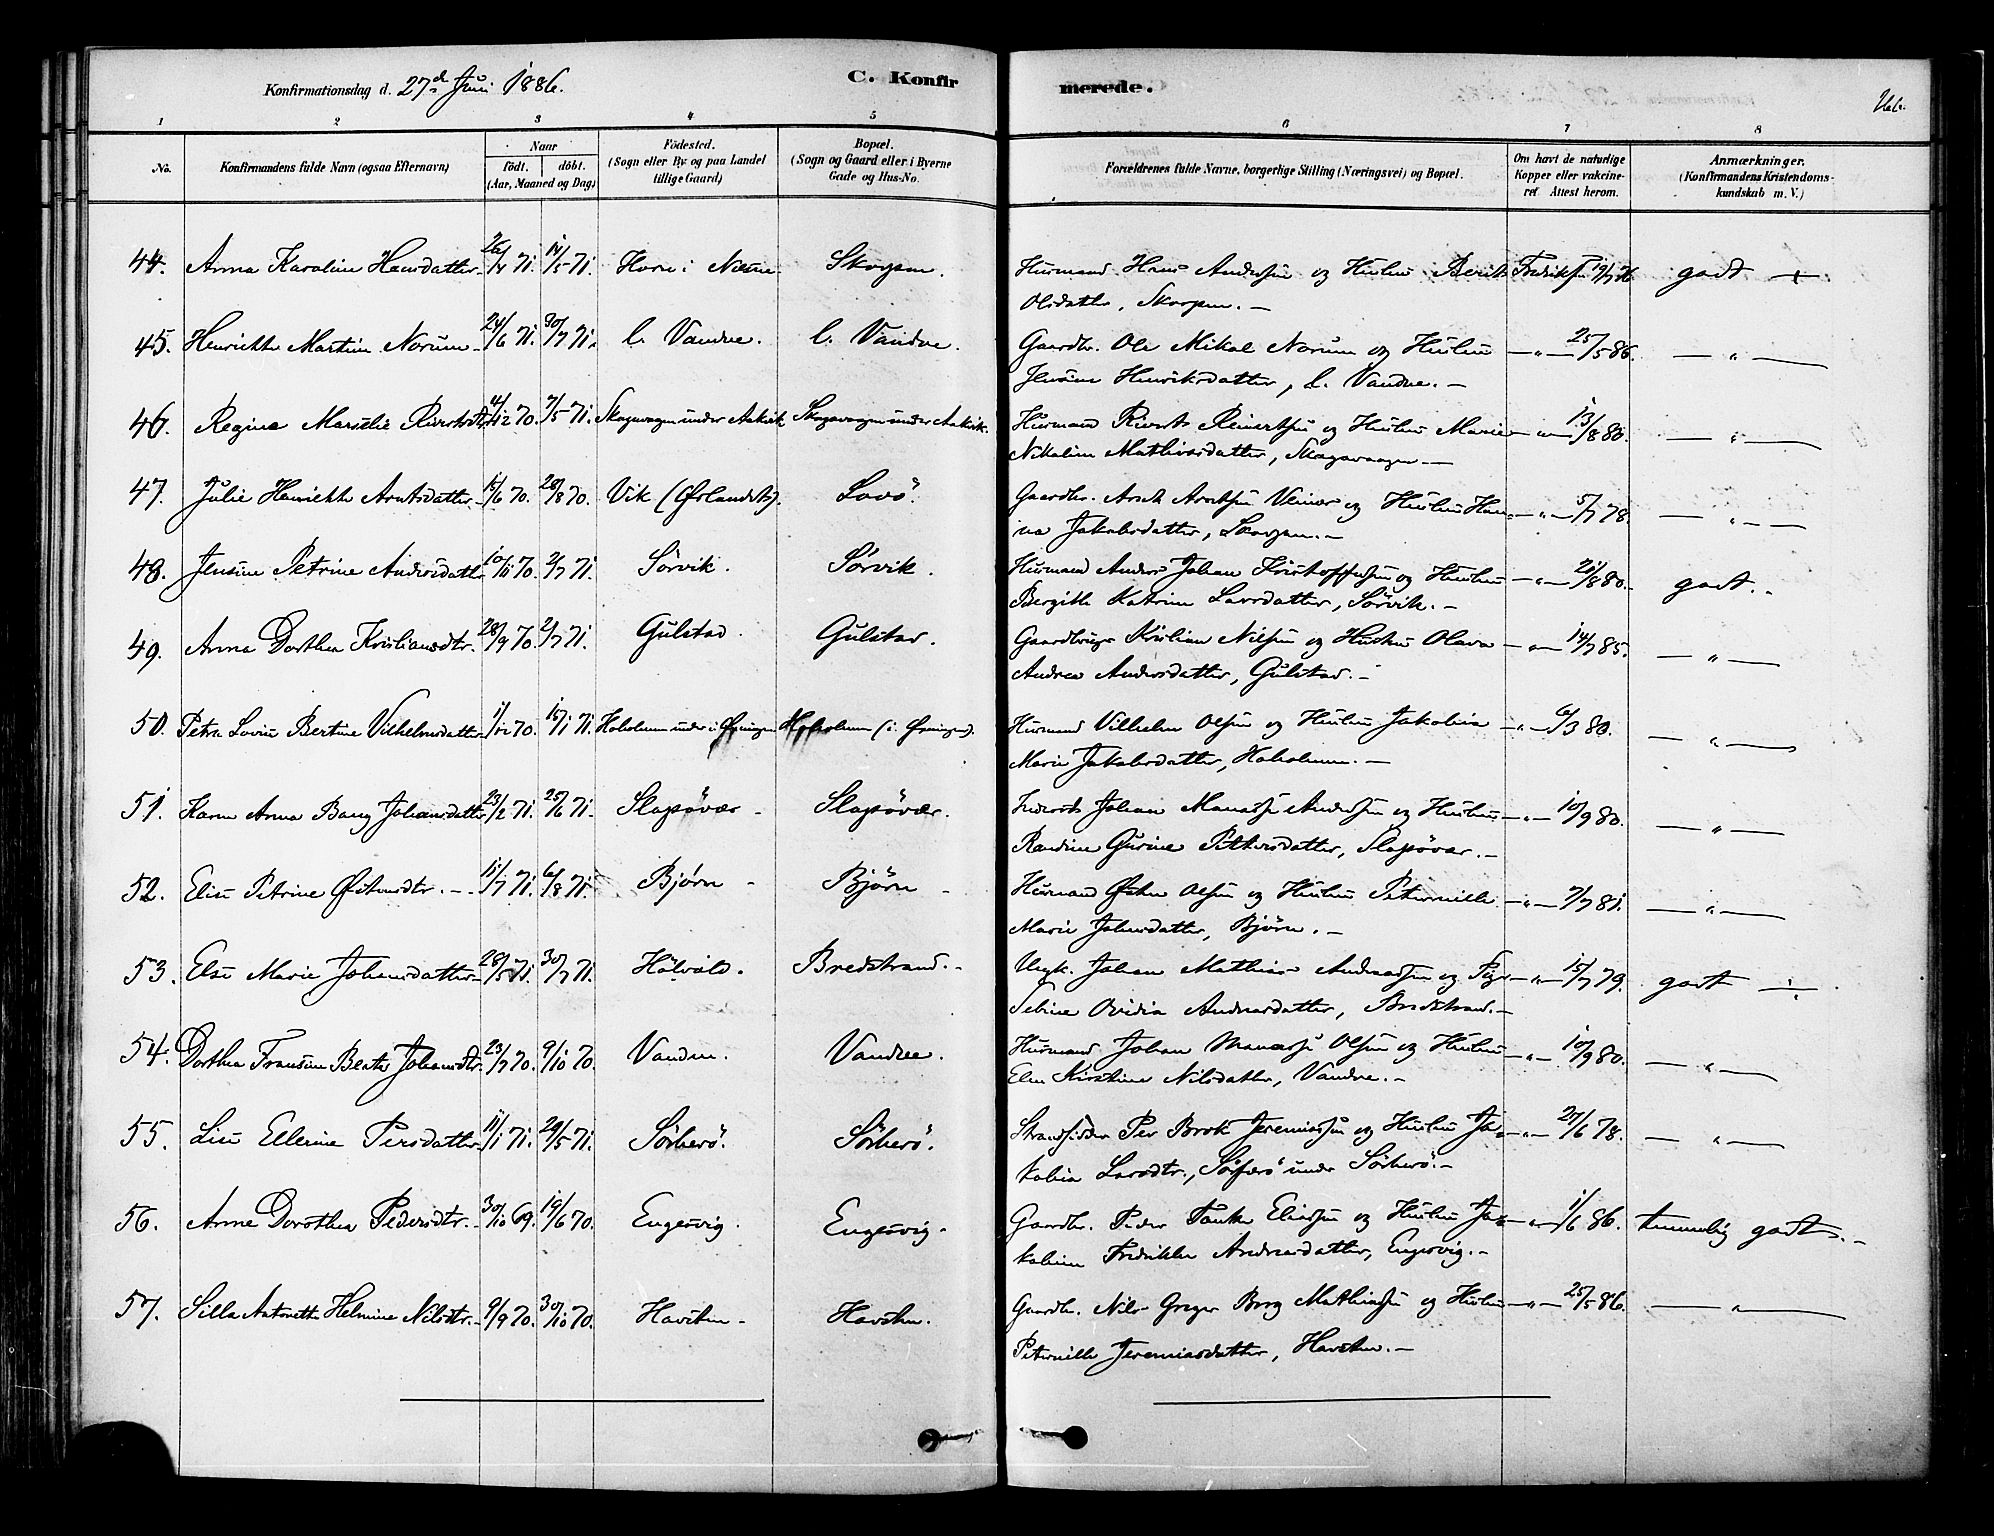 Konfirmationsdag d. 27de Juni 1886.
C. Konfir
merede.
1 2 3 4 5 6 7 8
No.
Konfirmandens fulde Navn (ogsaa Efternavn)
Naar
födt. döbt.
(Aar, Maaned og Dag)
Födested.
(Sogn eller By og paa Landet
tillige Gaard)
Bopæl.
(Sogn og Gaard eller i Byerne
Gade og Hus-No.
Forældrenes fulde Navne, borgerlige Stilling (Næringsvei) og Bopæl.
Om havt de naturlige
Kopper eller vakcine-
ret Attest herom.
Anmærkninger.
(Konfirmandens Kristendoms-
kundskab m. V.)
44. Anna Karoline Hansdatter 26/4 71. 14/5 71. Horn i Skogen. Husmand Hans Andersen og Hustru Berit Fredriksen 19/7 76. godt +
Olsdatter, Skogsen.
45. Henrikke Martine Norum 24/6 71. 30/7 71. l. Vandve. l. Vandve. Gaardbr. Ole Mikal Norum og Hustru —"— 25/5 86. —"—
Jensine Henriksdatter, l. Vandve.
46. Regine Marselie 4/12 70. 7/5 71. Skagavaagen under Aakvik Skagavaagen under Aakvik. Husmand Reinertsen og Hustru Marie —"— 13/8 80. —"—
Nikoline Mathiasdatter, Skagavaagen
47. Julie Henrikke Arntsdatter 15/6 70. 28/8 70. Vik (Ørlandet). Lovö. Gaardbr. Arnt Arntsen og Hustru Han- —"— 5/7 78. —"—
na Jakobsdatter,
48. Jensine Petrine Andersdatter 10/11 70. 2/7 71. Sörvik. Sörvik. Husmand Anders Johan Kristoffersen og Hustru —"— 21/8 80. godt.
Bergitte Katrine Larsdatter, Sörvik.
49. Anna Dorthea Kristiansdtr. 28/9 70. 2/7 71. Gulstad. Gulstad. Gaardbruger Kristian Nilsen og Hustru Olava —"— 14/7 85. —"—
Andrea Andersdatter, Gulstad.
50. Petra Lovise Bertine Vilhelmsdatter 1/12 70. 15/1 71. Holsholmen (i Øxningen). Husmand Vilhelm Olsen og Hustru Jakobia —"— 6/3 80. —"—
Marie Jakobsdatter, Holsholmen.
51. Karen Anna Bang Johansdatter 23/2 71. 25/6 71. Slapövær Slapövær. Johan Manasse Andersen og Hustru —"— 10/9 80. —"—
Randine Gurine Pettersdatter, Slapövær.
52. Elise Petrine Østensdtr. 11/7 71. 6/8 71. Bjørn Bjørn Husmand Østen Olsen og Hustru Peternille —"— 7/7 81. —"—
Marie Johnsdatter, Bjørn.
53. Else Marie Johansdatter 28/5 71. 30/7 71. Bredstrand. Ungk. Johan Mathias Andreassen og Pige —"— 15/7 79. godt ÷
Sebine Ovidia Andreasdatter, Bredstrand.
54. Dorthea Fransine Beate Johansdtr. 23/7 70. 9/10 70. Vandve. Vandve. Husmand Johan Manasse Olsen og Hustru —"— 10/9 80. —"—
Elen Kirstine Nilsdatter, Vandve.
55. Lise Ellerine Persdatter 11/1 71. 29/5 71. Sörherö. Sörherö. Strandsidder Per Brok Jeremiassen og Hustru Ja- —"— 27/6 78. —"—
kobia Larsdtr., under Sörherö.
56. Anne Dorothea Pedersdtr. 30/10 69. 19/6 70. Engesvig. Engesvig. Gaardbr. Peder Tanke Eliassen og Hustru Ja- —"— 1/6 86. temmelig godt.
kobine Fredrikke Andreasdatter, Engesvig.
57. Silla Antonette Helmine Nilsdtr. 9/9 70. 30/10 70. Havsten Havsten. Gaardbr. Nils Greger Borg Mathiassen og Hustru —"— 25/5 86. —"—
Peternille Jeremiasdatter, Havsten.